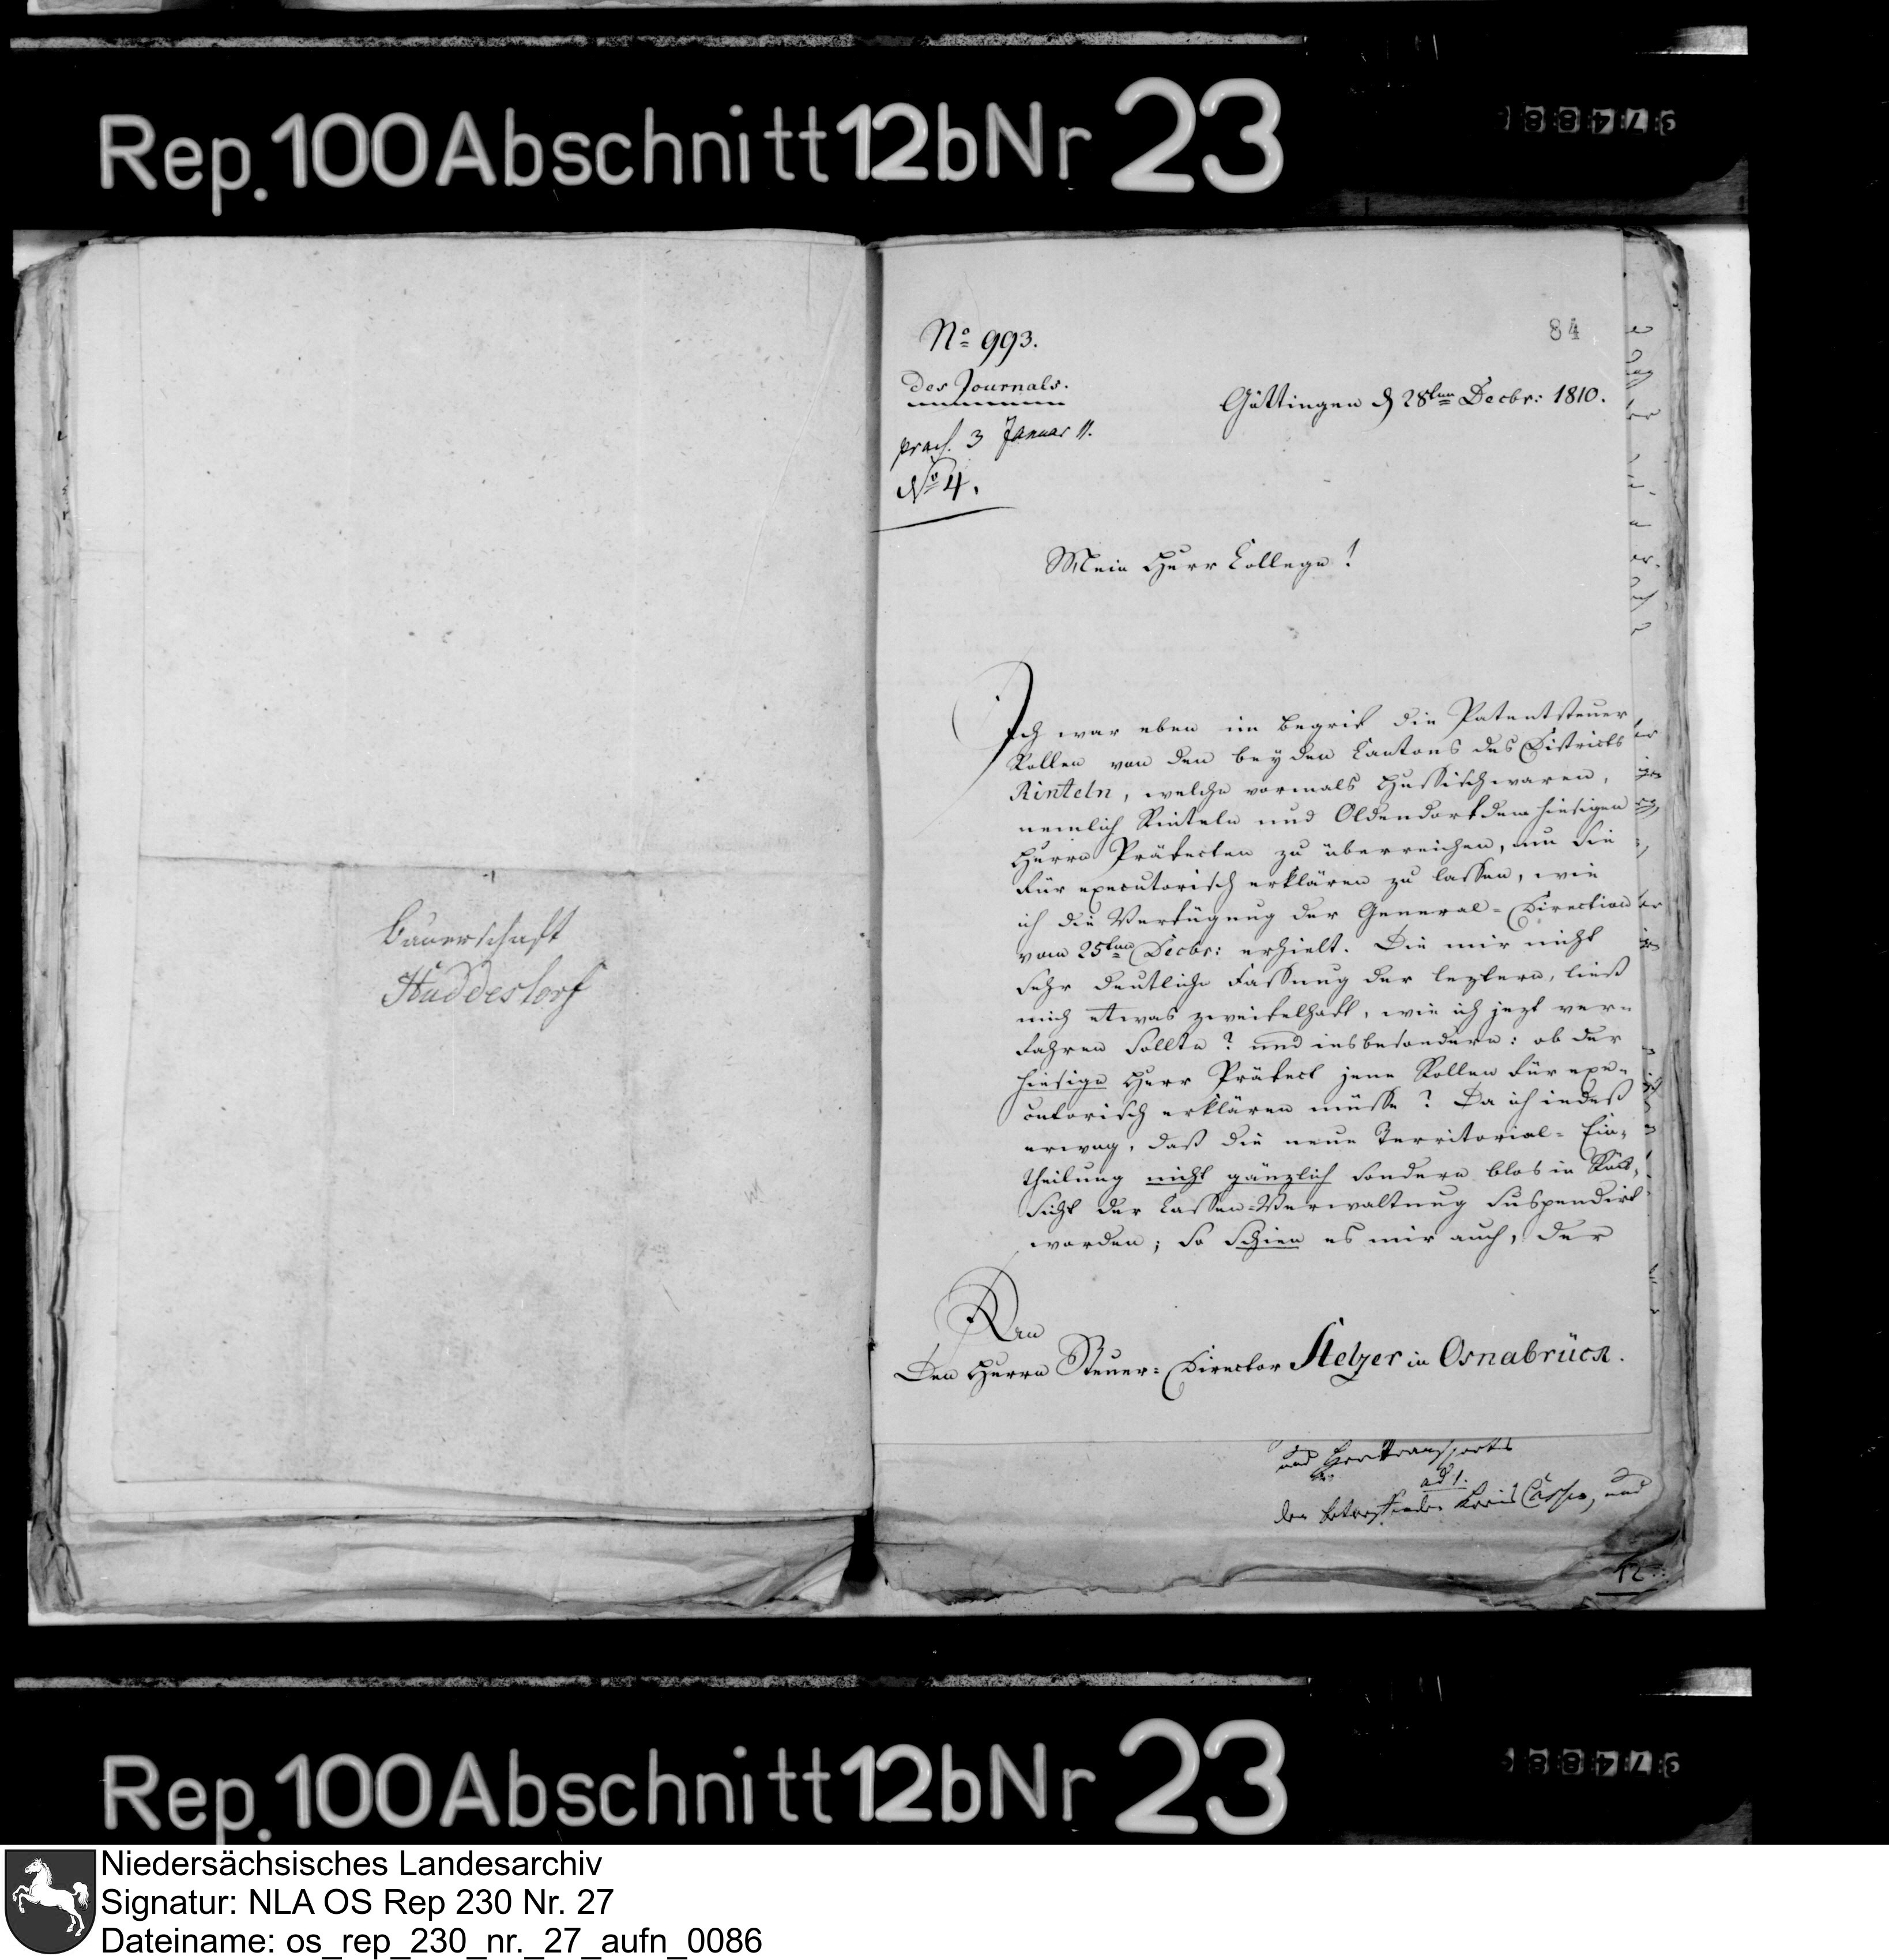 Rep. 100 Abschnitt 12b Nr 23
Bauerschaft
Huddestorf
84
No 993.
des Journals.
praes. 3 Januar 11.
No 4.
Göttingen d 28ten Decbr: 1810.
Mein Herr College!
Ich war eben im Begrif die Patentsteuer
Rollen von den beyden Cantons des Districts
Rinteln, welche vormals Hessisch waren,
nemlich Rinteln und Oldendorf dem hiesigen
Herrn Präfecten zu überreichen, um sie
für executorisch erklären zu lassen, wie
ich die Verfügung der General-Direction
vom 25ten Decbr: erhielt. Die mir nicht
sehr deutliche Fassung der leztern, ließ
mich etwas zweifelhaft, wie ich jezt ver-
fahren sollte? und insbesondere: ob der
hiesige Herr Präfect jene Rollen für exe-
cutorisch erklären müsse? Da ich indeß
erwog, daß die neue Territorial-Ein-
theilung nicht gänzlich sondern blos in Rück-
sicht der Cassen-Verwaltung suspendirt
worden; so schien es mir auch, der
An
Den Herrn Steuer-Director Stelzer in Osnabrück.
und
ad 1.
der betreffenden Kreis Casse, und
12
Rep. 100 Abschnitt 12b Nr 23
Niedersächsisches Landesarchiv
Signatur: NLA OS Rep 230 Nr. 27
Dateiname: os_rep_230_nr._27_aufn_0086